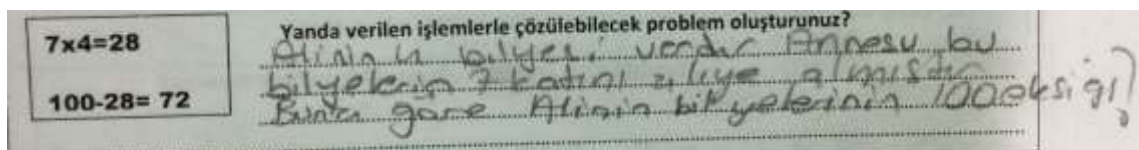 7x4=28
100-28= 72
Yanda verilen işlemlerle çözülebilecek problem oluşturunuz?
Alinin 4 bilyesi vardır Annesi bu
bilyelerin 7 katını aliye almıştır
Buna göre Alinin bilyelerinin 100 eksiği?